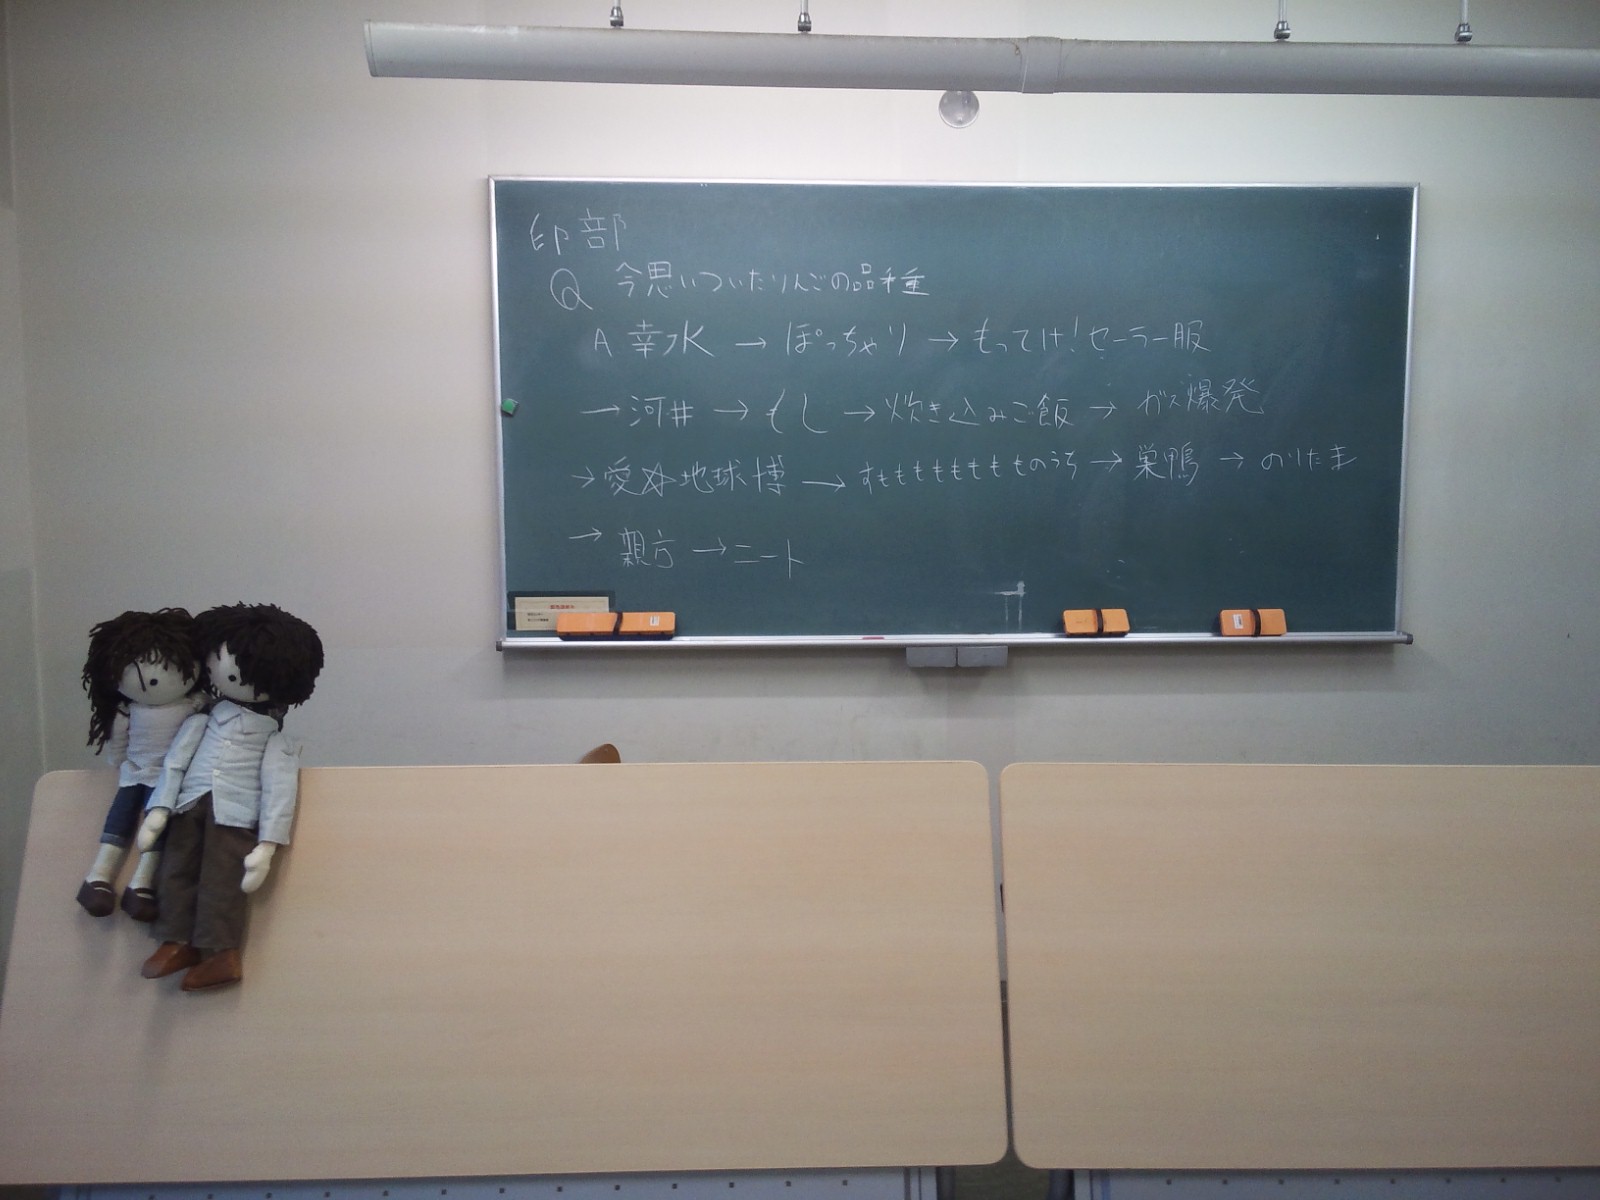 印部
Q 今思いついたりんごの品種
A 幸水 → ぽっちゃり → もってけ!セーラー服
→ 河井 → もし → 炊き込みご飯 → ガス爆発
→ 愛☆地球博 → すももももももものうち → 巣鴨 → のりたま
→ 親方 → ニート